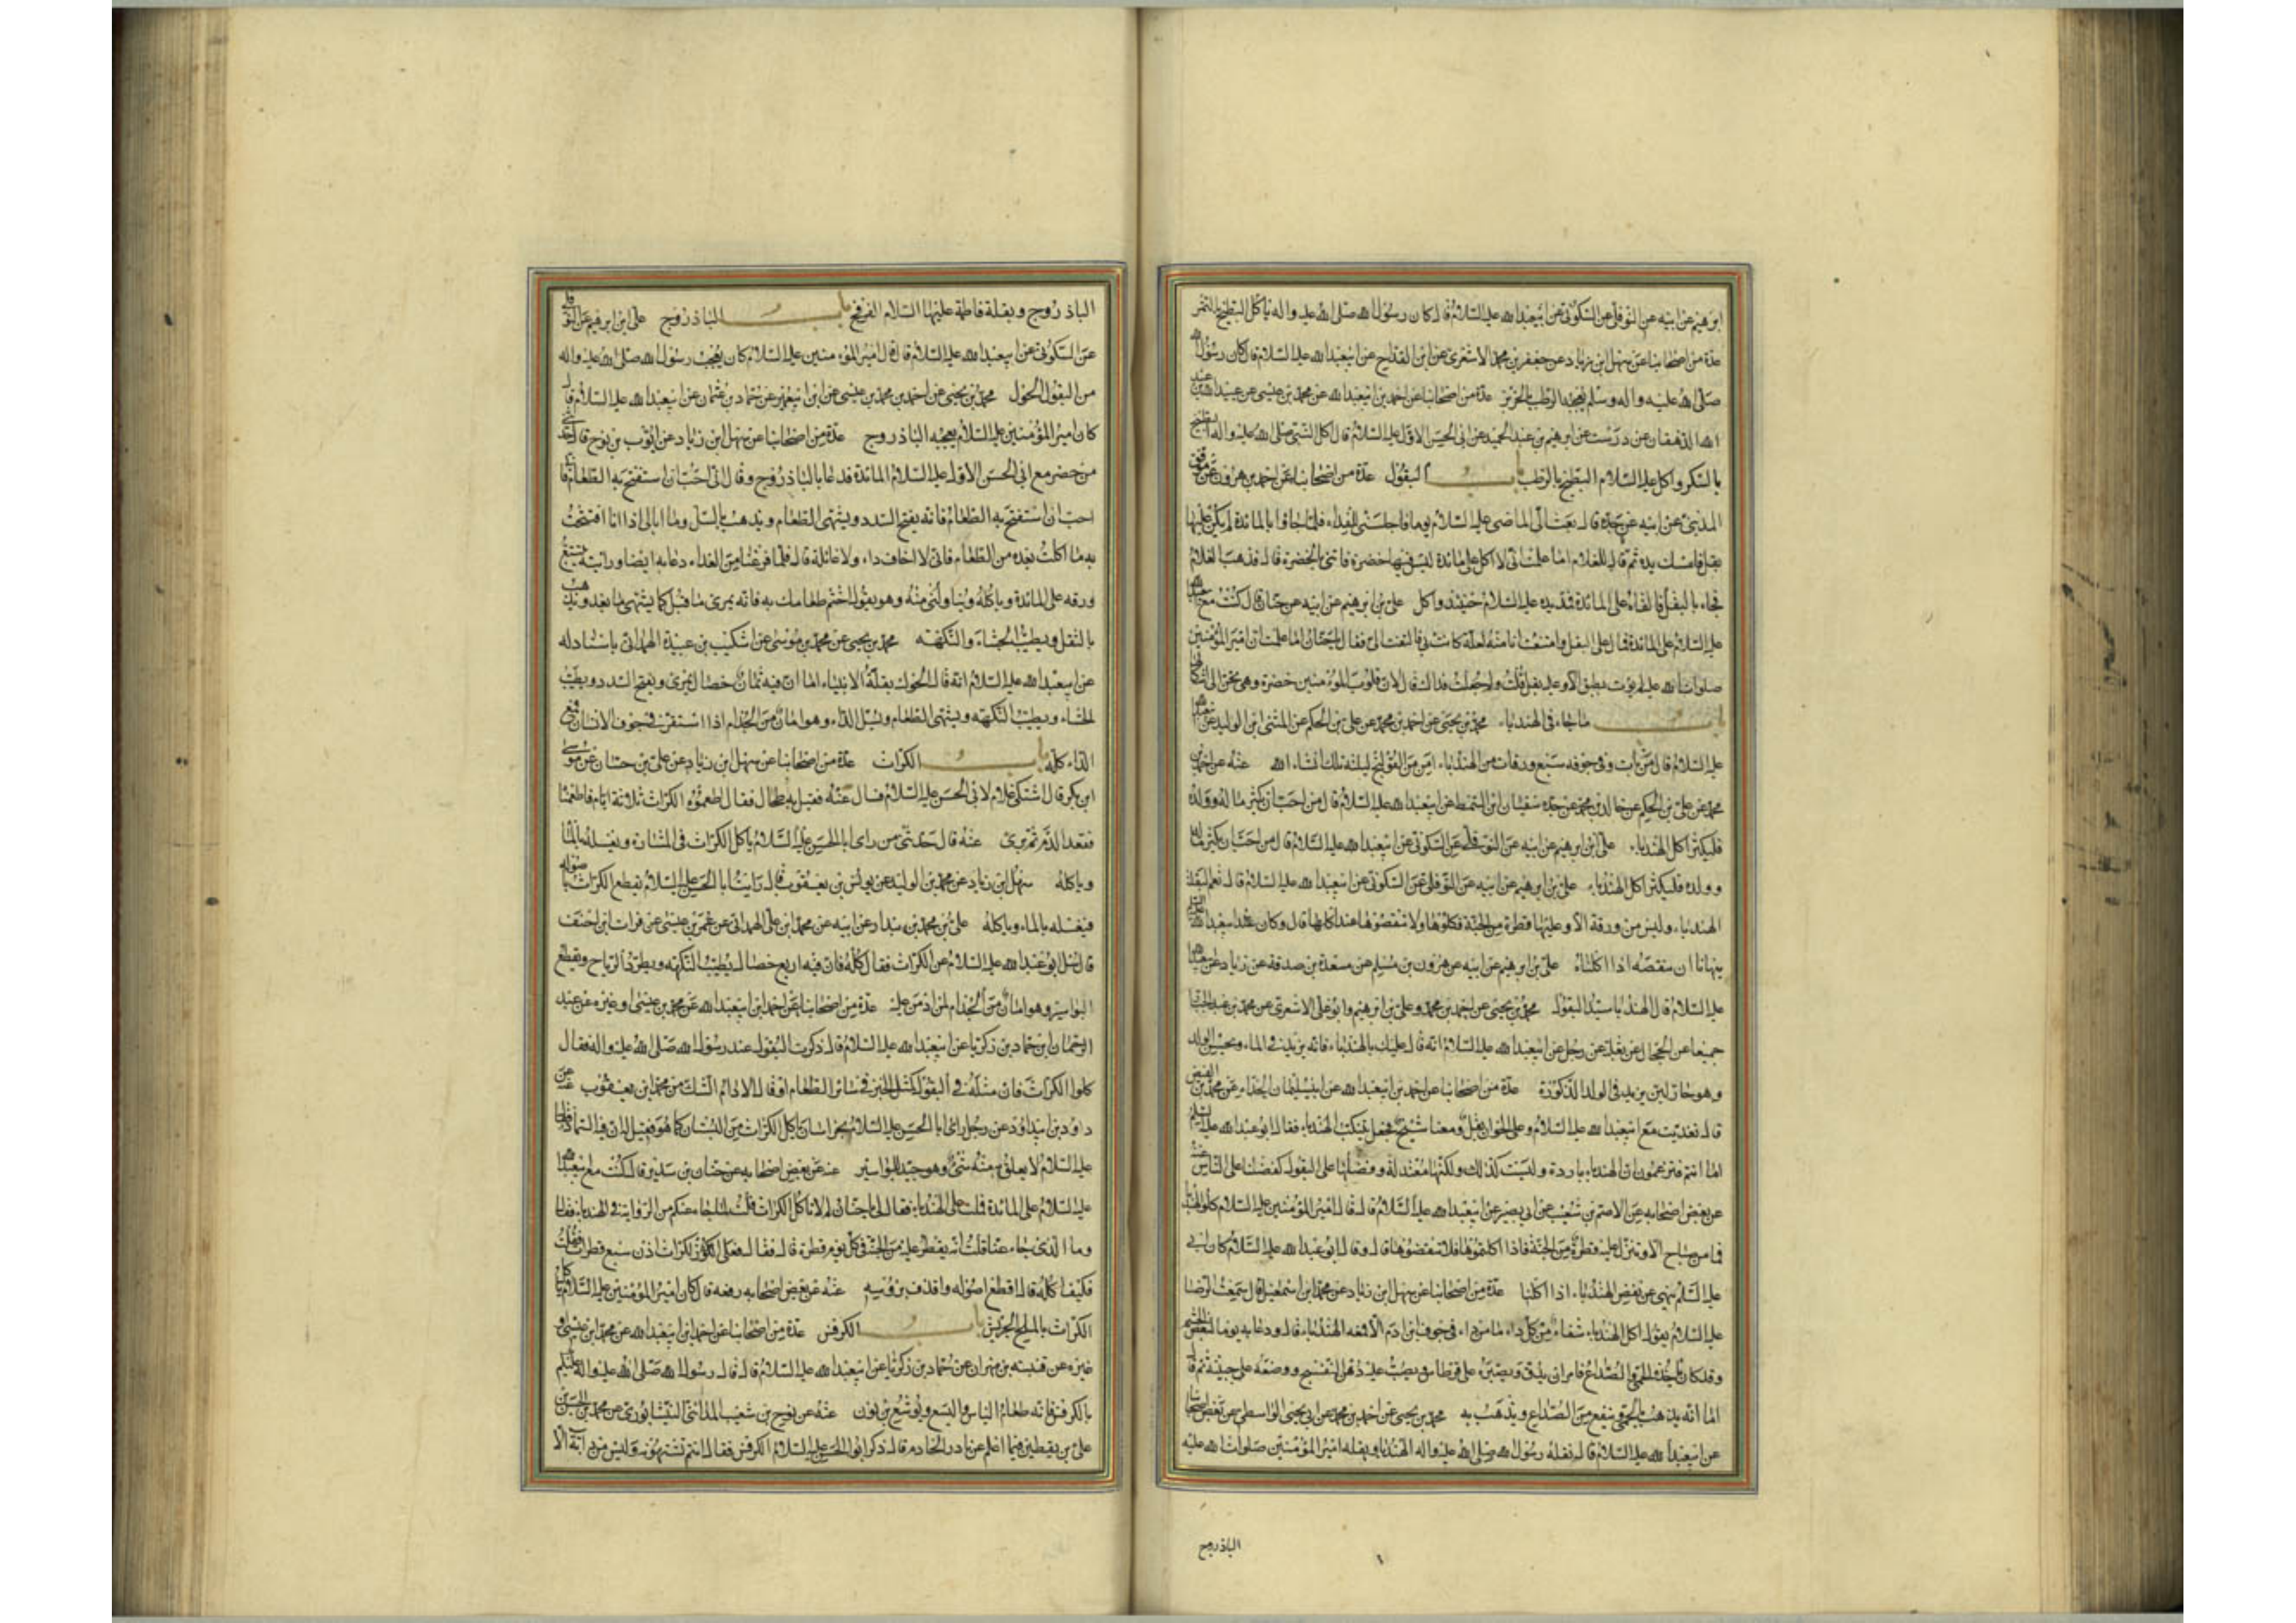 ابرهيم عن ابيه عن النوفلى عن السكونى عن ابيعبدالله عليه السلام قال كان رسول الله صلى الله عليه واله ياكل البطيخ بالتمر
عدة من اصحابنا عن سهل ابن زياد عن جعفر بن محمد الاشعرى عن ابن القداح عن ابيعبدالله عليه السلام قال كان رسول الله
صلى الله عليه واله وسلم يعجبه الرطب بالخربز عدة من اصحابنا عن احمد بن ابيعبدالله عن محمد بن عيسى عن عبيدالله بن عبد
الله الدهقان عن درست عن ابرهيم بن عبد الحميد عن ابى الحسن الاول عليه السلام قال اكل النبى صلى الله عليه واله البطيخ
بالسكر واكل عليه السلام البطيخ بالرطب باب البقول عدة من اصحابنا عن احمد بن هرون عن موفق
المدينى عن ابيه عن جده قال بعث الى الماضى عليه السلام يوما فاجلسنى للغداء فلما جاؤا بالمائدة لم يكن عليها
بقل فامسك يده ثم قال للغلام اما علمت انى لا اكل على مائدة ليس فيها خضرة فاتنى بالخضرة قال فذهب الغلام
فجاء بالبقل فالقاه على المائدة فمد يده عليه السلام حينئذ واكل على بن ابرهيم عن ابيه عن حنان قال كنت مع ابيعبدالله
عليه السلام على المائدة فمال على البقل وامتنعت انا منه لعلة كانت بى فالتفت الى فقال يا حنان اما علمت ان امير المؤمنين
صلوات الله عليه لم يؤت بطبق الا وعليه بقل قلت ولم جعلت فداك قال لان قلوب المؤمنين خضرة وهى تحن الى اشكالها
باب ما جاء فى الهندباء محمد بن يحيى عن احمد بن محمد عن على بن الحكم عن المثنى ابن الوليد عن ابيعبدالله
عليه السلام قال من بات وفى جوفه سبع ورقات من الهندباء امن من القولنج ليلته تلك انشاء الله عنه عن احمد بن
محمد عن على بن الحكم عن خالد بن محمد عن جده سفيان ابن السمط عن ابيعبدالله عليه السلام قال من احب ان يكثر ماله وولده
فليكثر اكل الهندباء على ابن ابرهيم عن ابيه عن النوفلى عن السكونى عن ابيعبدالله عليه السلام قال من احب ان يكثر ماله
وولده فليكثر اكل الهندباء على بن ابرهيم عن ابيه عن النوفلى عن السكونى عن ابيعبدالله عليه السلام قال نعم البقلة
الهندباء وليس من ورقة الا وعليها قطرة من الجنة فكلوها ولا تنفضوها عند اكلها قال وكان ابى عليه السلام
ينهانا ان ننفضه اذا اكلناه على بن ابرهيم عن ابيه عن هرون بن مسلم عن مسعدة بن صدقة عن زياد عن ابيعبدالله
عليه السلام قال الهندبا سيد البقول محمد بن يحيى عن احمد بن محمد وعلى بن ابرهيم وابو على الاشعرى عن محمد بن عبد الجبار
جميعا عن الحجال عن ثعلبة عن رجل عن ابيعبدالله عليه السلام انه قال عليك بالهندباء فانه يزيد فى الماء ويحسن الولد
وهو حار لين يزيد فى الولد الذكورة عدة من اصحابنا عن احمد بن ابيعبدالله عن ابى سليمان الحذاء عن محمد بن الفيض
قال تغديت مع ابيعبدالله عليه السلام وعلى الخوان بقل ومعنا شيخ فجعل يتنكب الهندباء فقال ابو عبدالله عليه السلام
اما انتم فتزعمون ان الهندباء باردة وليست كذلك ولكنها معتدلة وفضلها على البقول كفضلنا على الناس عنه
عن بعض اصحابه عن الاصم بن شعيب عن ابى بصير عن ابيعبدالله عليه السلام قال قال امير المؤمنين عليه السلام كلوا الهندباء
فما من صباح الا وتنزل عليه قطرة من الجنة فاذا اكلتموها فلا تنفضوها قال وقال ابو عبدالله عليه السلام كان ابى
عليه السلم ينهى عن نفض الهندباء اذا اكلنا عدة من اصحابنا عن سهل ابن زياد عن محمد ابن اسمعيل قال سمعت الرضا
عليه السلام يقول اكل الهندباء شفاء من كل داء ما من داء فى جوف ابن ادم الا قمعه الهندباء قال ودعا به يوما لبعض الحشم
وقد كان تاخذه الحمى والصداع فامر ان يدق وصيره على قرطاس وصب عليه دهن البنفسج ووضعه على جبينه ثم قال
اما انه يذهب بالحمى وينفع من الصداع ويذهب به محمد بن يحيى عن احمد بن محمد عن ابى يحيى الواسطى عن بعض اصحابنا
عن ابيعبدالله عليه السلام قال بقلة رسول الله صلى الله عليه واله الهندبا وبقله امير المؤمنين صلوات الله عليه
الباذروج
الباذروج وبقلة فاطمة عليها السلام الفرفخ باب الباذروج على ابن ابرهيم عن النوفلى
عن السكونى عن ابيعبدالله عليه السلام قال قال امير المؤمنين عليه السلام كان يعجب رسول الله صلى الله عليه واله
من البقول الحوك محمد بن يحيى عن احمد بن محمد بن عيسى عن ابن ابى عمير عن حماد بن عثمان عن ابيعبدالله عليه السلام قال
كان امير المؤمنين عليه السلام يعجبه الباذروج عدة من اصحابنا عن سهل ابن زياد عن ايوب بن نوح قال حدثنى
من حضر مع ابى الحسن الاول عليه السلام المائدة فدعا بالباذروج وقال انى احب ان استفتح به الطعام فانى
احب ان استفتح به الطعام فانه يفتح السدد ويشهى الطعام ويذهب بالسل وما ابالى اذا انا افتتحت
به ما اكلت بعده من الطعام فانى لا اخاف داء ولا غائلة قال فلما فرغنا من الغداء دعا به ايضا ورايته يتتبع
ورقه على المائدة وياكله ويناولنى منه وهو يقول اختم طعامك به فانه يمرى ما قبل كما يشهى ما بعد ويذهب
بالثقل ويطيب الجشاء والنكهه محمد بن يحيى عن محمد بن موسى عن اشكيب بن عبدة الهمدانى باسناد له
عن ابيعبدالله عليه السلام انه قال الحوك بقلة الانبياء اما ان فيه ثمان خصال يمرى ويفتح السدد ويطيب
الجشاء ويطيب النكهه ويشهى الطعام ويسل الداء وهو امان من الجذام اذا استقر فى جوف الانسان قمع
الداء كله باب الكراث عدة من اصحابنا عن سهل ابن زياد عن على بن حسان عن موسى
ابن بكر قال اشتكى غلام لابى الحسن عليه السلام فسال عنه فقيل به طحال فقال اطعموه الكراث ثلاثة ايام فاطعمناه
فقعد الدم ثم برى عنه قال حدثنى من راى ابا الحسن عليه السلام ياكل الكراث فى المشارة ويغسله بالماء
وياكله سهل ابن زياد عن محمد بن الوليد عن يونس بن يعقوب قال رايت ابا الحسن عليه السلام يقطع الكراث باصوله
فيغسله بالماء وياكله على بن محمد بن بندار عن ابيه عن محمد ابن على الهمدانى عن عمر بن عيسى عن فرات ابن احنف
قال سئل ابو عبدالله عليه السلام عن الكراث فقال كله فان فيه اربع خصال يطيب النكهه ويطرد الرياح ويقطع
البواسير وهو امان من الجذام لمن ادمن عليه عدة من اصحابنا عن احمد ابن ابيعبدالله عن محمد بن عيسى او غيره عن عبد
الرحمان ابن حماد بن زكريا عن ابيعبدالله عليه السلام قال ذكرت البقول عند رسول الله صلى الله عليه واله فقال
كلوا الكراث فان مثله فى البقول كمثل الخبز فى سائر الطعام او قال الادام الشك من محمد ابن يعقوب عنه عن
داود بن ابيداود عن رجل راى ابا الحسن عليه السلام بخراسان ياكل الكراث من البستان كما هو فقيل ان فيه السماد فقال
عليه السلام لا يعلق منه شى وهو جيد للبواسير عنه عن بعض اصحابه عن حنان بن سدير قال كنت مع ابيعبدالله
عليه السلام على المائدة فملت على الهندباء فقال لى يا حنان لم لا تاكل الكراث قلت لما جاء عنكم من الرواية فى الهندباء فقال
وما الذى جاء عنا قلت انه يقطر عليه من الجنة فى كل يوم قطرة قال فقال فعلى الكراث اذن سبع قطرات فقلت
فكيف اكله قال اقطع اصوله واقذف برؤسه عنه عن بعض اصحابه رفعه قال كان امير المؤمنين عليه السلام ياكل
الكراث بالملح الجريش باب الكرفس عدة من اصحابنا عن احمد ابن ابيعبدالله عن محمد ابن عيسى او
غيره عن قتيبه بن مهران عن حماد بن زكريا عن ابيعبدالله عليه السلام قال قال رسول الله صلى الله عليه واله عليكم
بالكرفس فانه طعام الياس واليسع ويوشع بن نون عنه عن نوح بن شعيب المدائنى النيسابورى عن محمد بن الحسن بن
على بن يقطين فيما اعلم عن نادر الخادم قال ذكر ابو الحسن عليه السلام الكرفس فقال انتم تشتهونه وليس من دابة الا